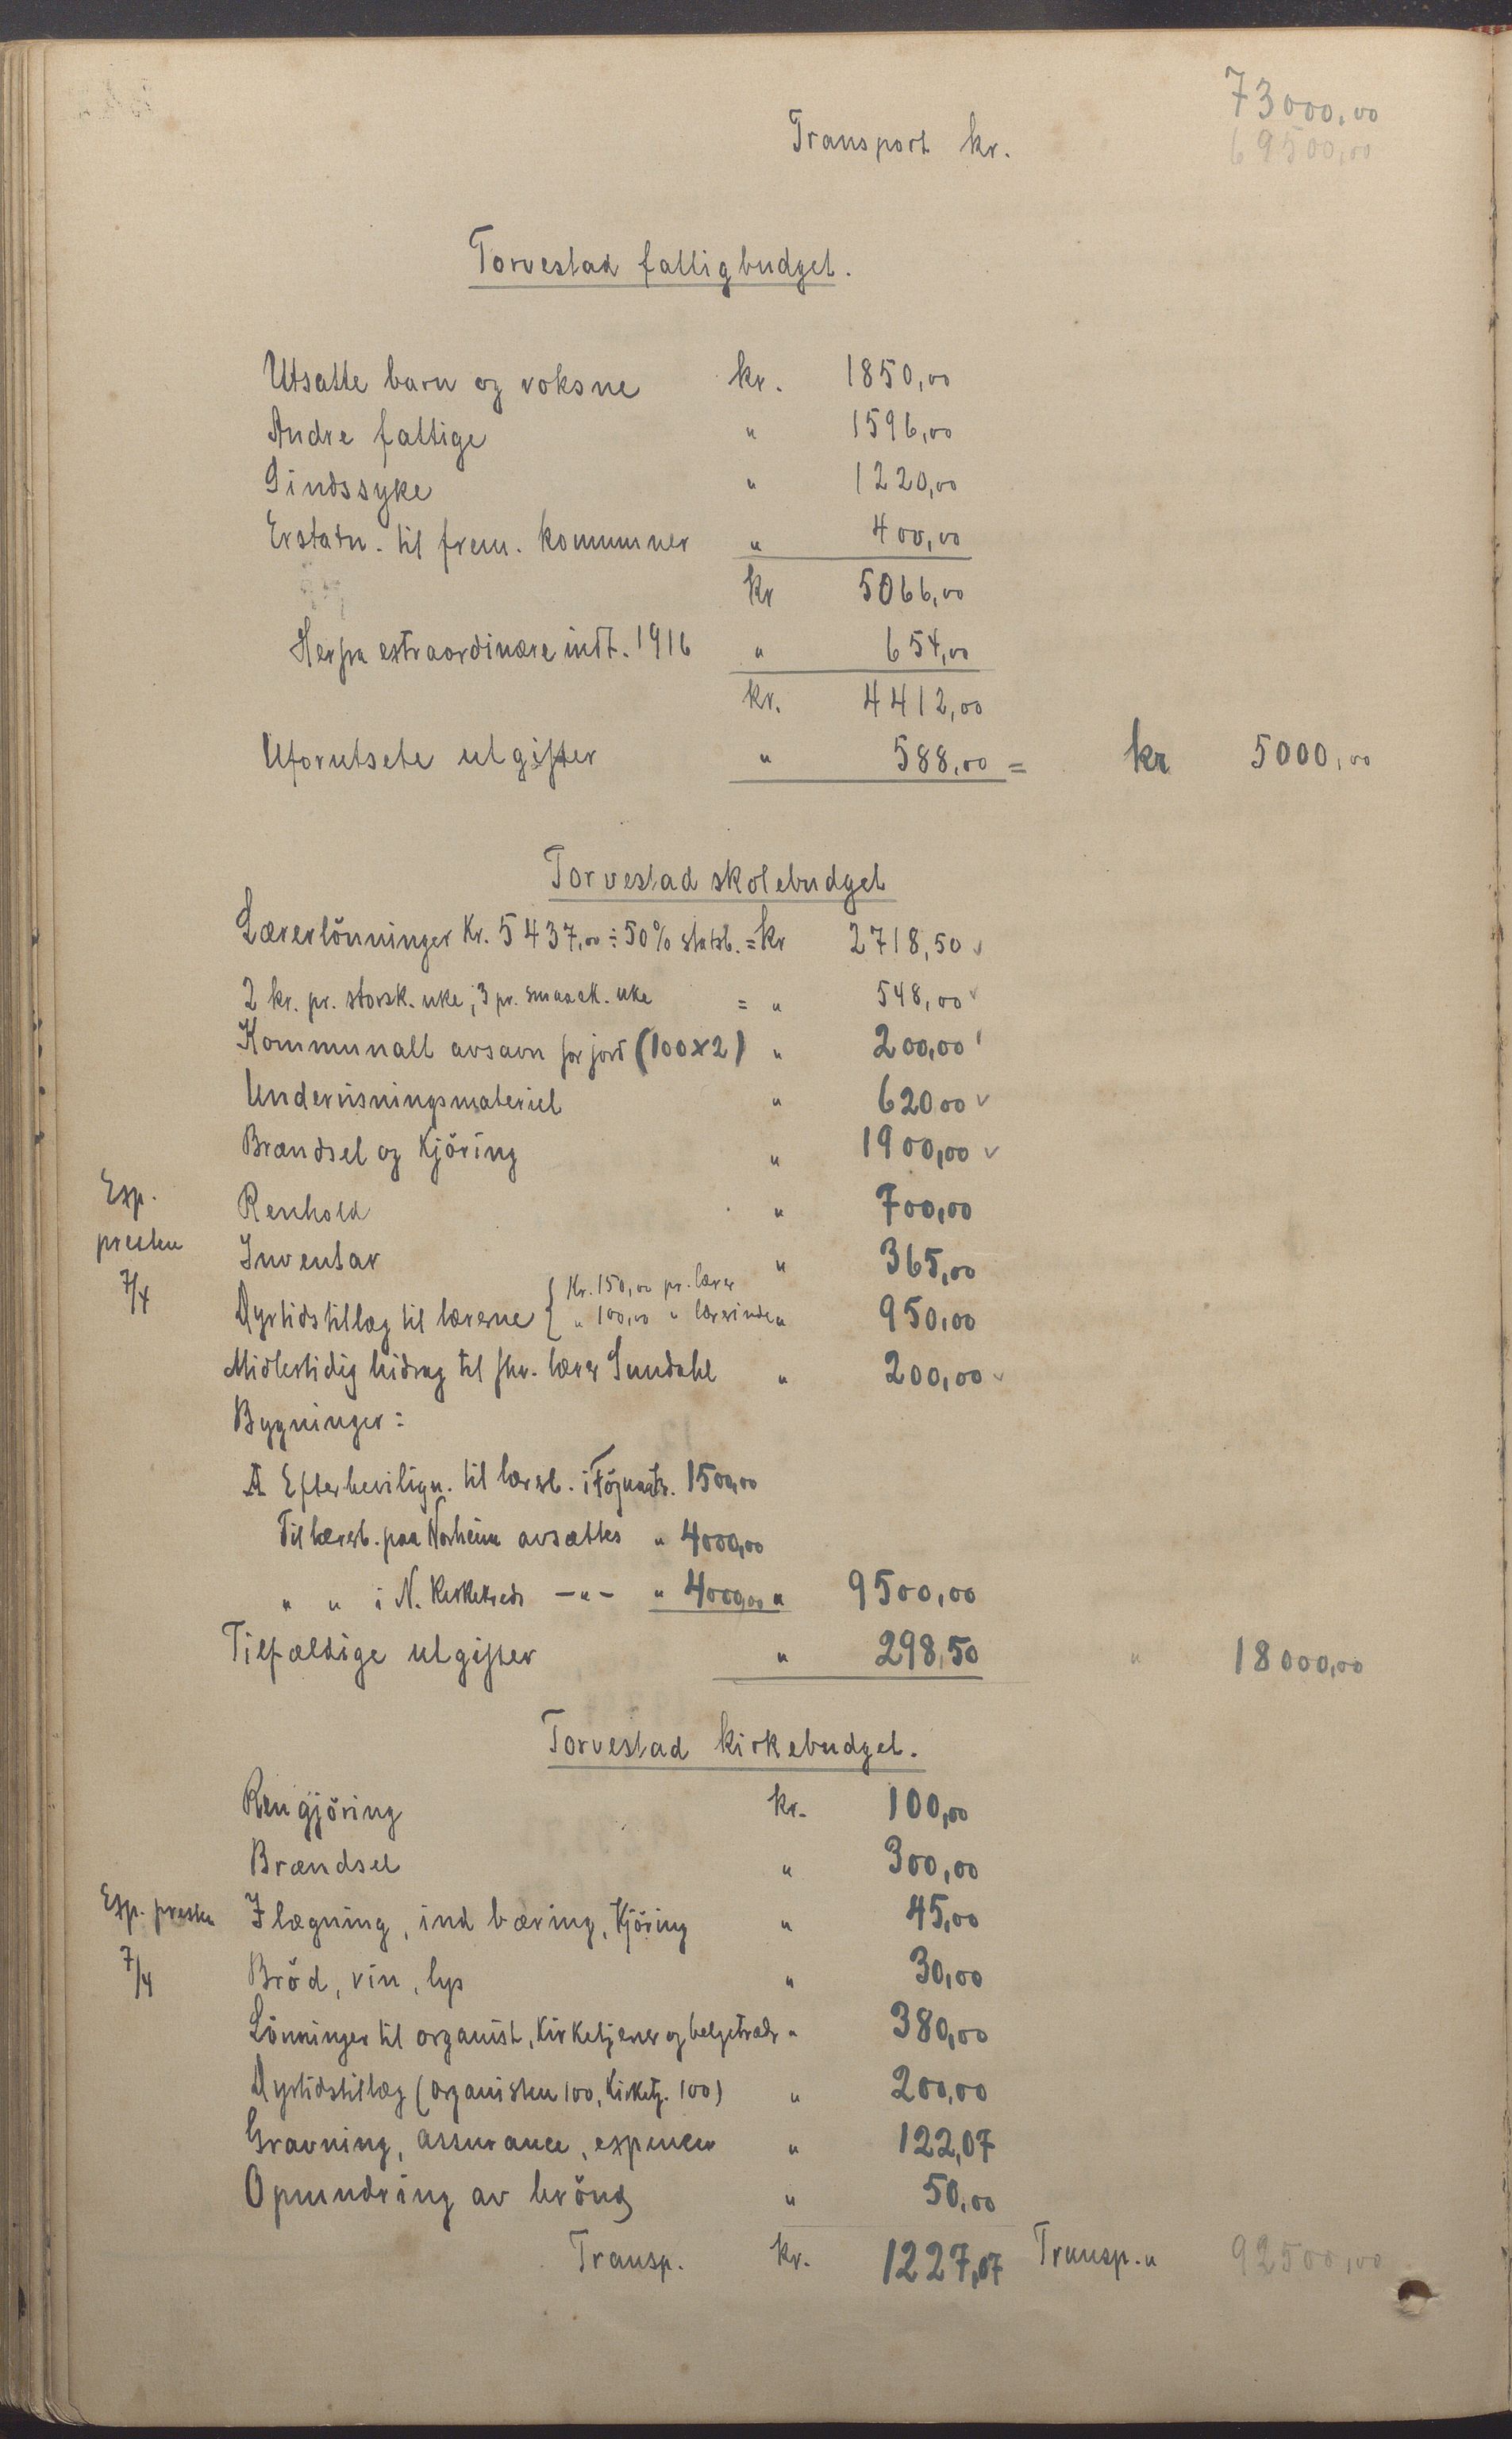 73000,00
Transport kr. 69500,00
Torvestad fattigbudget.
Utsatte barn og voksne kr. 1850,00
Andre fattige " 1596,00
Sindssyke " 1220,00
Erstatn. til frem. kommuner " 400,00
kr 5066,00
Herfra extraordinære indt. 1916 " 654,00
kr. 4412,00
Uforutsete utgifter " 588,00 = kr 5000,00
Torvestad skolebudget
Lærerlönninger Kr. 5437,00 ÷ 50% statsb. = kr 2718,50 ✓
2 kr. pr. storsk. uke, 3 pr. smaask. uke = " 548,00 ✓
Kommunalt avsavn for jord (100×2) " 200,00
Undervisningsmateriel " 620 00 ✓
Brændsel og Kjöring " 1900,00 ✓
Exp. Renhold " 700,00
presten Inventar " 365,00
7/4
Dyrtidstillæg til lærerne { Kr. 150,00 pr. lærer
" 100,00 " lærerinde " 950,00
Midlertidig bidrag til fhv. lærer Sundahl " 200,00 ✓
Bygninger:
Efterbevilign. til lærerb. i 1500,00
Til lærerb. paa Norheim avsættes " 4000,00
" " i N. Kirkekreds —"— " 4000,00 " 9500,00
Tilfældige utgifter " 298,50 " 18000,00
Torvestad kirkebudget.
Rengjöring kr. 100,00
Brændsel " 300,00
Exp. presten Ilægning, indbæring, Kjöring " 45,00
7/4 Bröd, vin, lys " 30,00
Lönninger til organist, Kirketjener og belgetræder " 380,00
Dyrtidstillæg (organisten 100, Kirketj. 100) " 200,00
Gravning, assurance, expencer " 122,07
Opmundring av brönd " 50,00
Transp. kr. 1227,07 Transp. " 92500,00